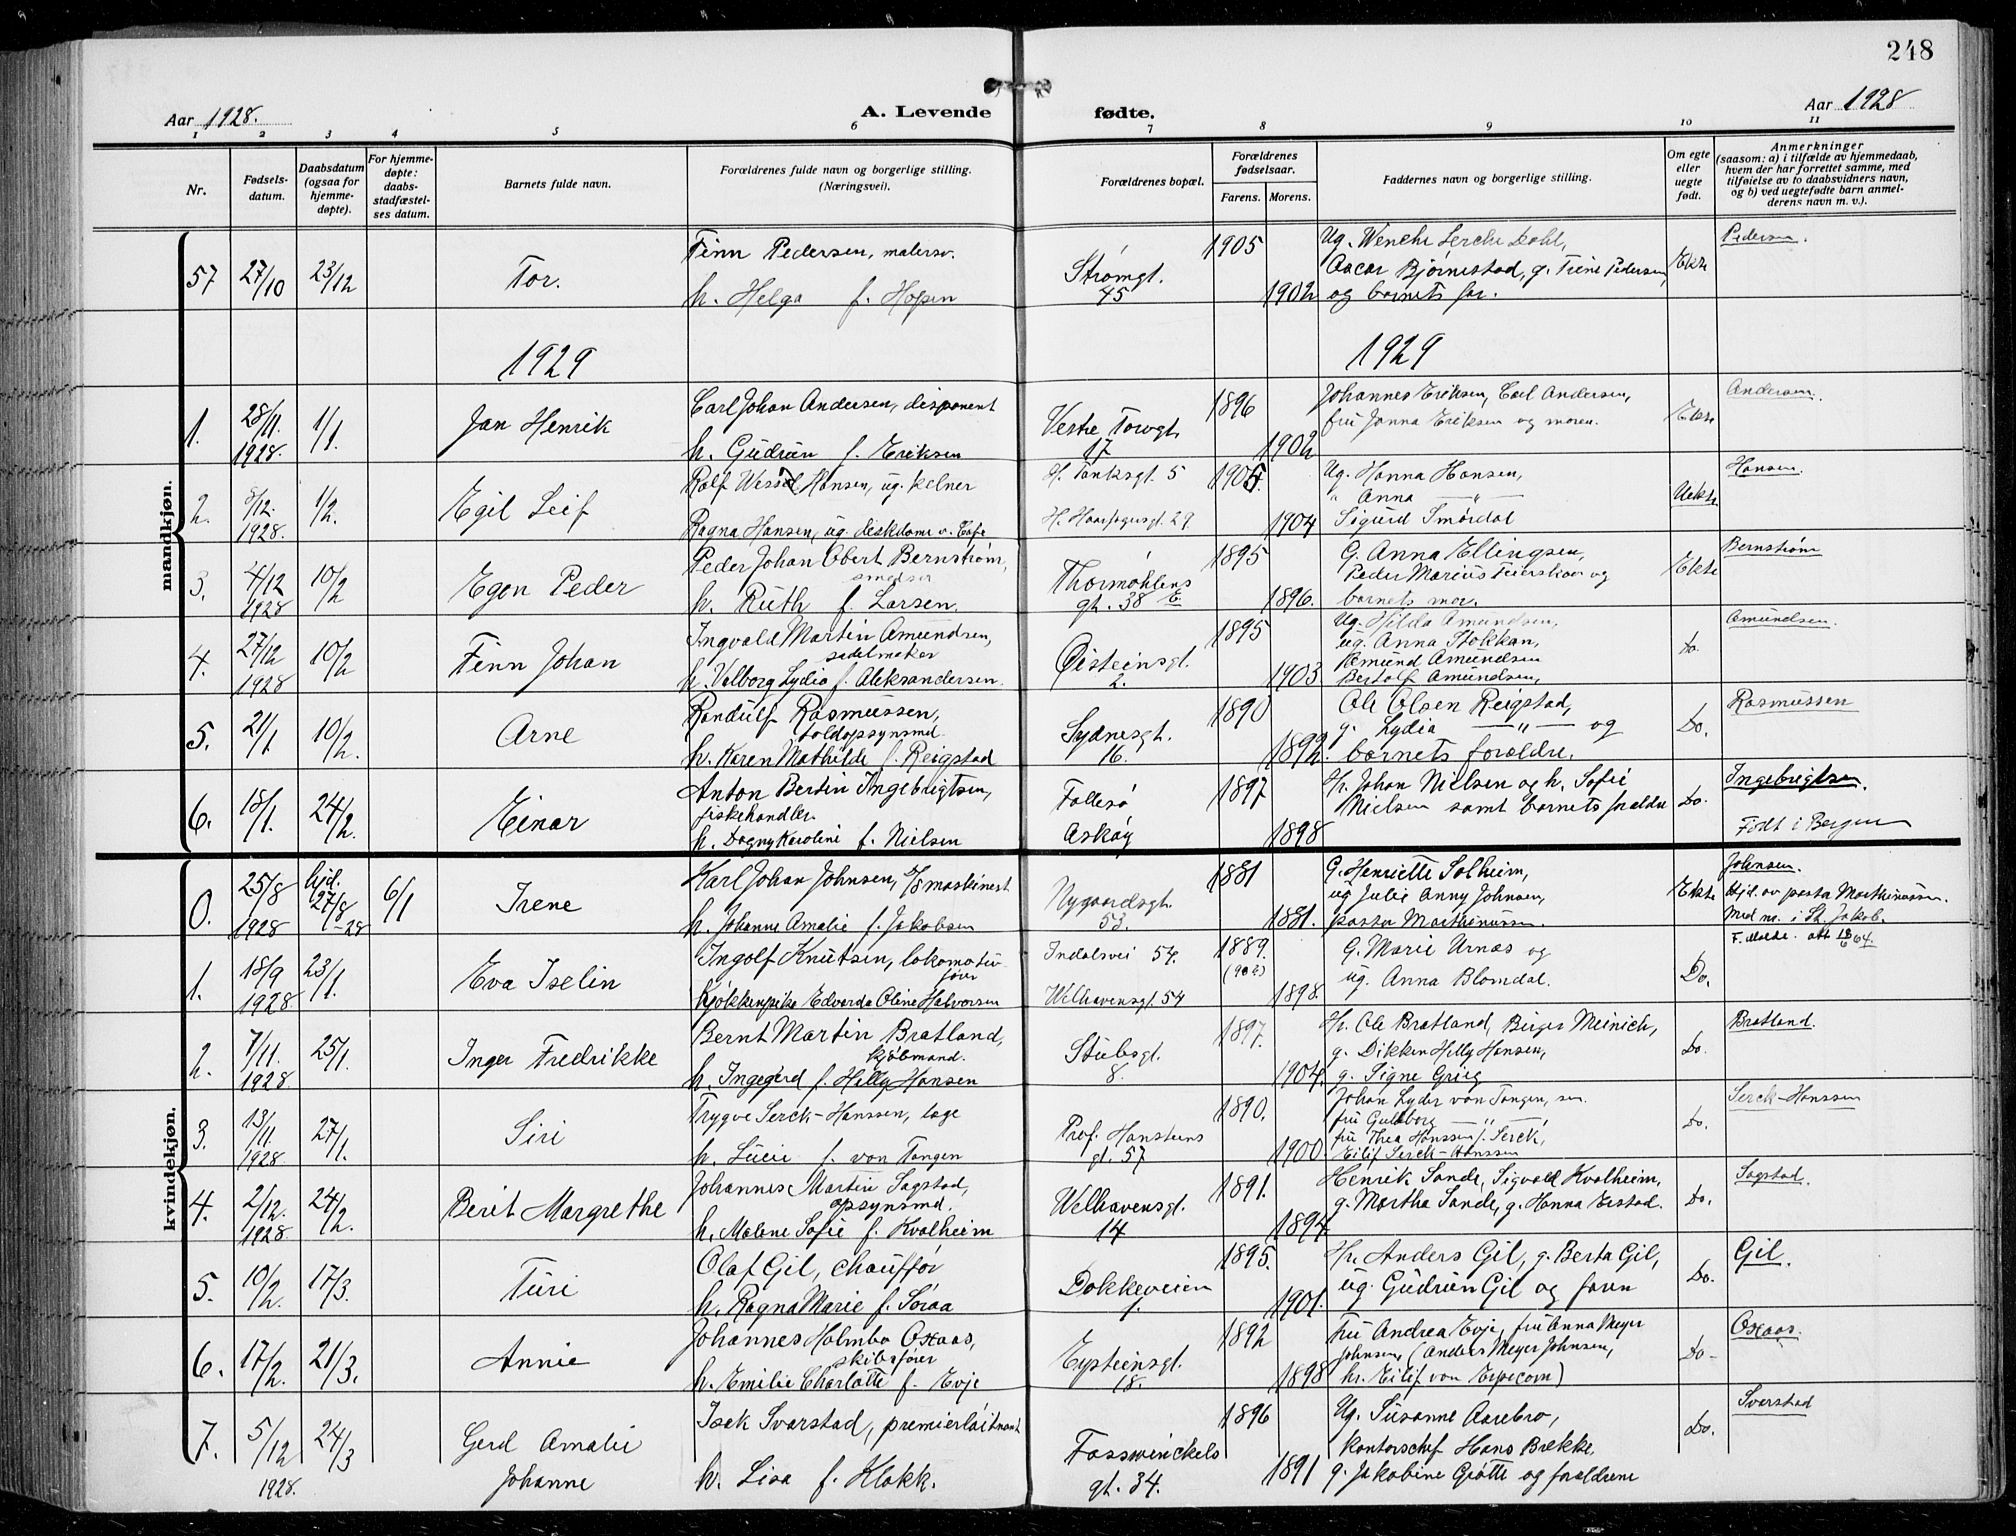 248
Aar 1928.
A. Levende fødte.
Aar 1928
1 2 3 4 5 6 7 8 9 10 11
Nr.
Fødselsdatum.
Daabsdatum (ogsaa for hjemmedøpte).
For hjemmedøpte: daabsstadfæstelses datum.
Barnets fulde navn.
Forældrenes fulde navn og borgerlige stilling. (Næringsvei).
Forældrenes bopæl.
Forældrenes fødselsaar.
Farens. Morens.
Faddernes navn og borgerlige stilling.
Om egte eller uegte født.
Anmerkninger
(saasom: a) i tilfælde av hjemmedaab, hvem der har forrettet samme, med tilføielse av to daabsvidners navn, og b) ved uegtefødte barn anmelderens navn m. v.).
mandkjøn.
57 27/10 23/12 Tor. Finn Pedersen, malersv. h. Helga f. Hopen Strømgt. 45 1905 1902 Ug. Wenche Lerche Dahl, Oscar Bjørnestad, g. Trine Pedersen, og barnets far. Ekte Pedersen.
1929
1929
1. 28/11 1928. 1/1. Jan Henrik Carl Johan Andersen, disponent h. Gudrun f. Eriksen Vestre Torvgt. 17 1896 1902 Johannes Eriksen, Carl Andersen, fru Janna Eriksen og moren. Ekte Andersen.
2. 8/12. 1928. 1/2. Egil Leif Rolf Wessel Hansen, ug. kelner Ragna Hansen, ug. deskdame v. Cafe H. Tanksgt. 5 H. Haarfagersgt. 29 1904 Ug. Hanna Hansen, " Anna —"— Sigurd Smørdal Uekte Hansen.
3. 4/12 1928 10/2 Egon Peder Peder Johan Obert Bernstrøm, smedsv h. Ruth f. Larsen. Thormøhlens gt. 38 E 1895 1896. G. Anna Ellingsen, Peder Marius Feierskov og barnets mor. Ekte Bernstrøm
4. 27/12 1928 10/2 Finn Johan Ingvald Martin Amundsen, sadelmaker h. Valborg Lydia f. Aleksandersen. Øisteinsgt. 2. 1895 1903 Ug. Hilda Amundsen, ug. Anna Stokkan, Asmund Amundsen Bertolf Amundsen, Do. Amundsen.
5. 21/1 10/2. Arne Randulf Rasmussen, toldopsynsmd h. Karen Mathilde f. Reigstad Sydnesgt. 16. 1890 1892. Ole Olsen Reigstad, g. Lydia —"— og barnets foraldre. Do. Rasmussen
6. 18/1. 24/2. Einar Anton Bertin Ingebrigtsen, fiskehandler. h. Dagny Karoline f. Nielsen Follesø Askøy 1897 1898 Hr. Johan Nielsen og h. Sofie Nielsen samt barnets foraldre Do. Ingebrigtsen. Født i Bergen
kvindekjøn.
0. 25/8 1928 hjd. 27/8 -28 6/1 Irene Karl Johan Johnsen, maskinest h. Johanne Amalie f. Jakobsen Nygaardsgt. 53. 1881 1881. G. Henriette Solheim, ug Julie Anny Johnsen, pastor Marthinussen. Ekte Johnsen. Hjd. av pastor Marthinussen. Med nr. i St. Jakob.
1. 18/9 1928 23/1. Eva Iselin Ingolf Knutsen, lokomotivfører kjøkkenpike Edvarda Oline Halvorsen Indalsvei 54. Welhavensgt. 54 1889. 1898. G. Marie Urnæs og ug. Anna Blomdal. Do.
2. 7/11. 1928 25/1. Inger Fredrikke Bernt Martin Bratland, kjøbmand. h. Ingegerd f. Helly Hansen Stubsgt. 8. 1897. 1904. Hr. Ole Bratland, Birger Meinich, g. Dikken Helly Hansen, g. Signe Grieg Do. Bratland.
3. 13/11. 1928. 27/1. Siri Trygve Serck-Hanssen, læge h. Lucie f. von Tangen Prof. Hansteens gt. 57 1890. 1900. Johan Lyder von Tangen, sen. fru Guldborg —"— fru Thea Hanssen f. Serck, Eilif Serck-Hanssen Do. Serck-Hanssen
4. 2/12. 1928 24/2. Berit Margrethe Johannes Martin Sagstad, opsynsmd. h. Malene Sofie f. Kvalheim Welhavensgt. 14 1891. 1894. Henrik Sande, Sigvald Kvalheim, g. Martha Sande, g. Hanna Erstad. Do. Sagstad.
5. 10/2. 17/3. Turi Olaf Gil, chauffør h. Ragna Marie f. Søraa Dokkeveien 1. 1895. 1901. Hr. Anders Gil, g. Berta Gil, ug. Gudrun Gil og faren Do. Gil.
6. 17/2. 21/3. Annie Johannes Holmbo Oxaas, skibsfører h. Emilie Charlotte f. Evje Eysteinsgt. 18. 1892 1898 Fru Andrea Evje, fru Anna Meyer Johnsen, (Anders Meyer Johnsen, hr. Eilif von Erpecom) Do. Oxaas.
7. 5/12 1928. 24/3 Gerd Amalie Johanne Isak Svarstad, premierløitnant h. Lisa f. Klokk. Fosswinckels gt. 34. 1896 1891 Ug. Susanne Aarebro, Kontorschef Hans Brekke. g. Jakobine Grøtte og foraldrene Do. Svarstad